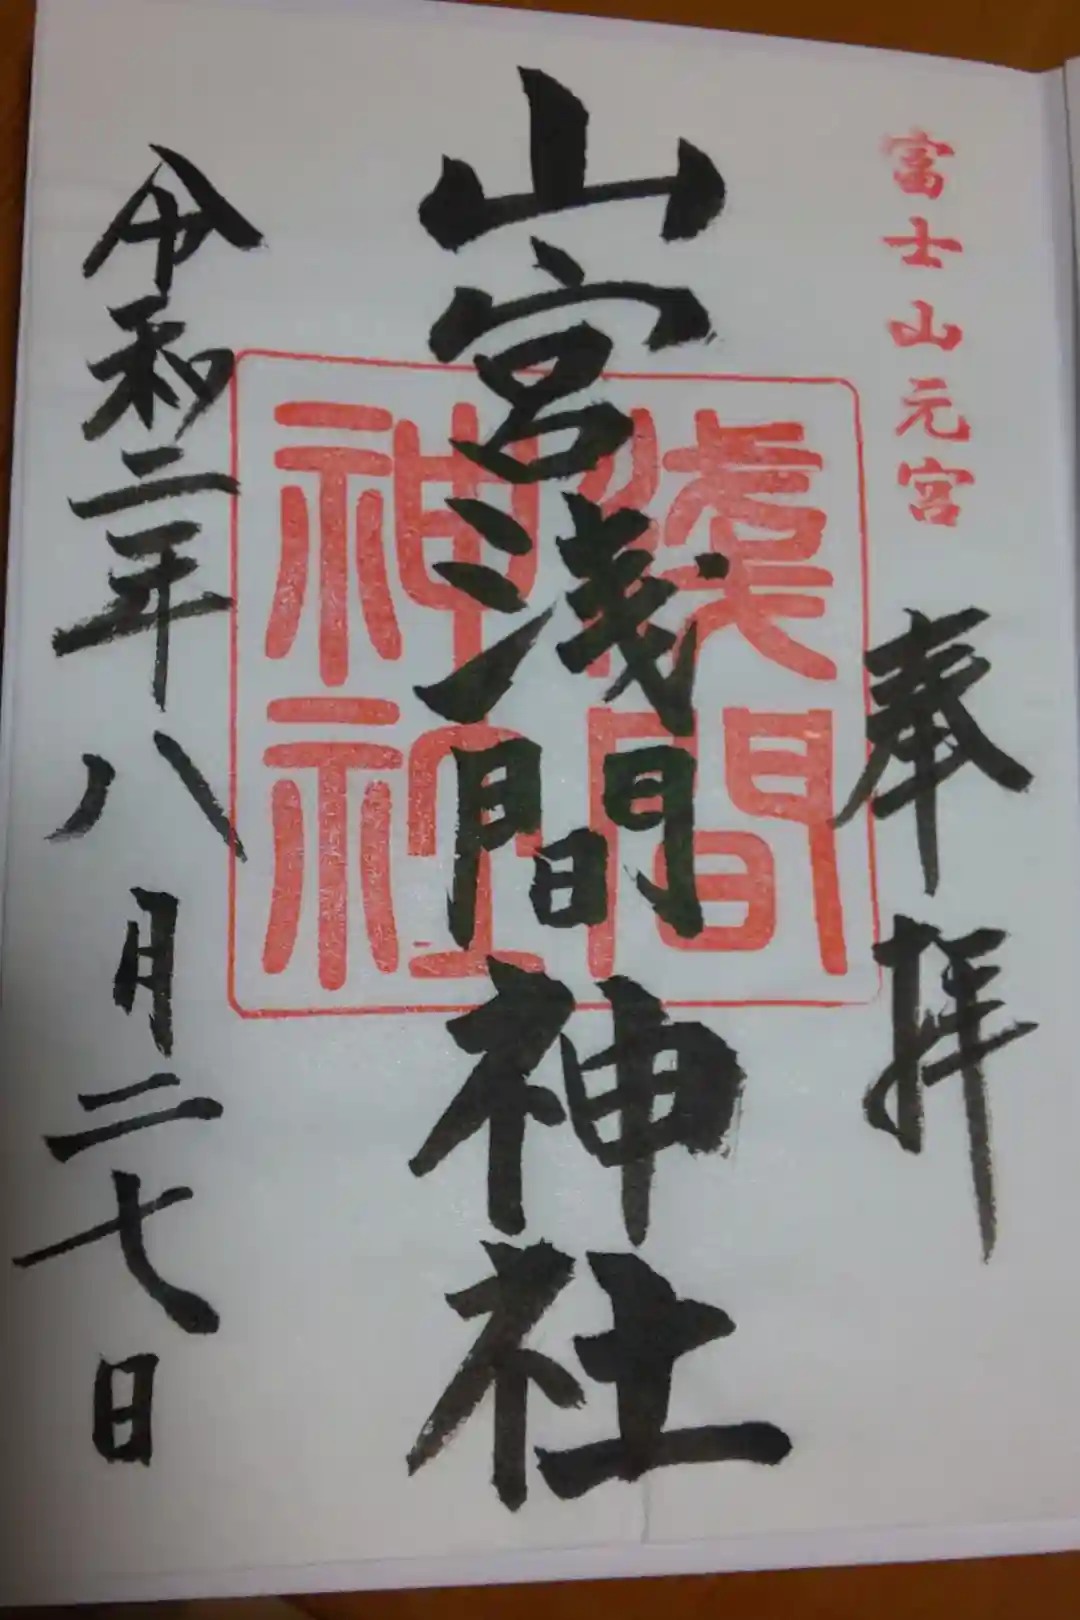 富士山元宮
奉拝
山宮浅間神社
淺間
神社
令和二年八月二七日